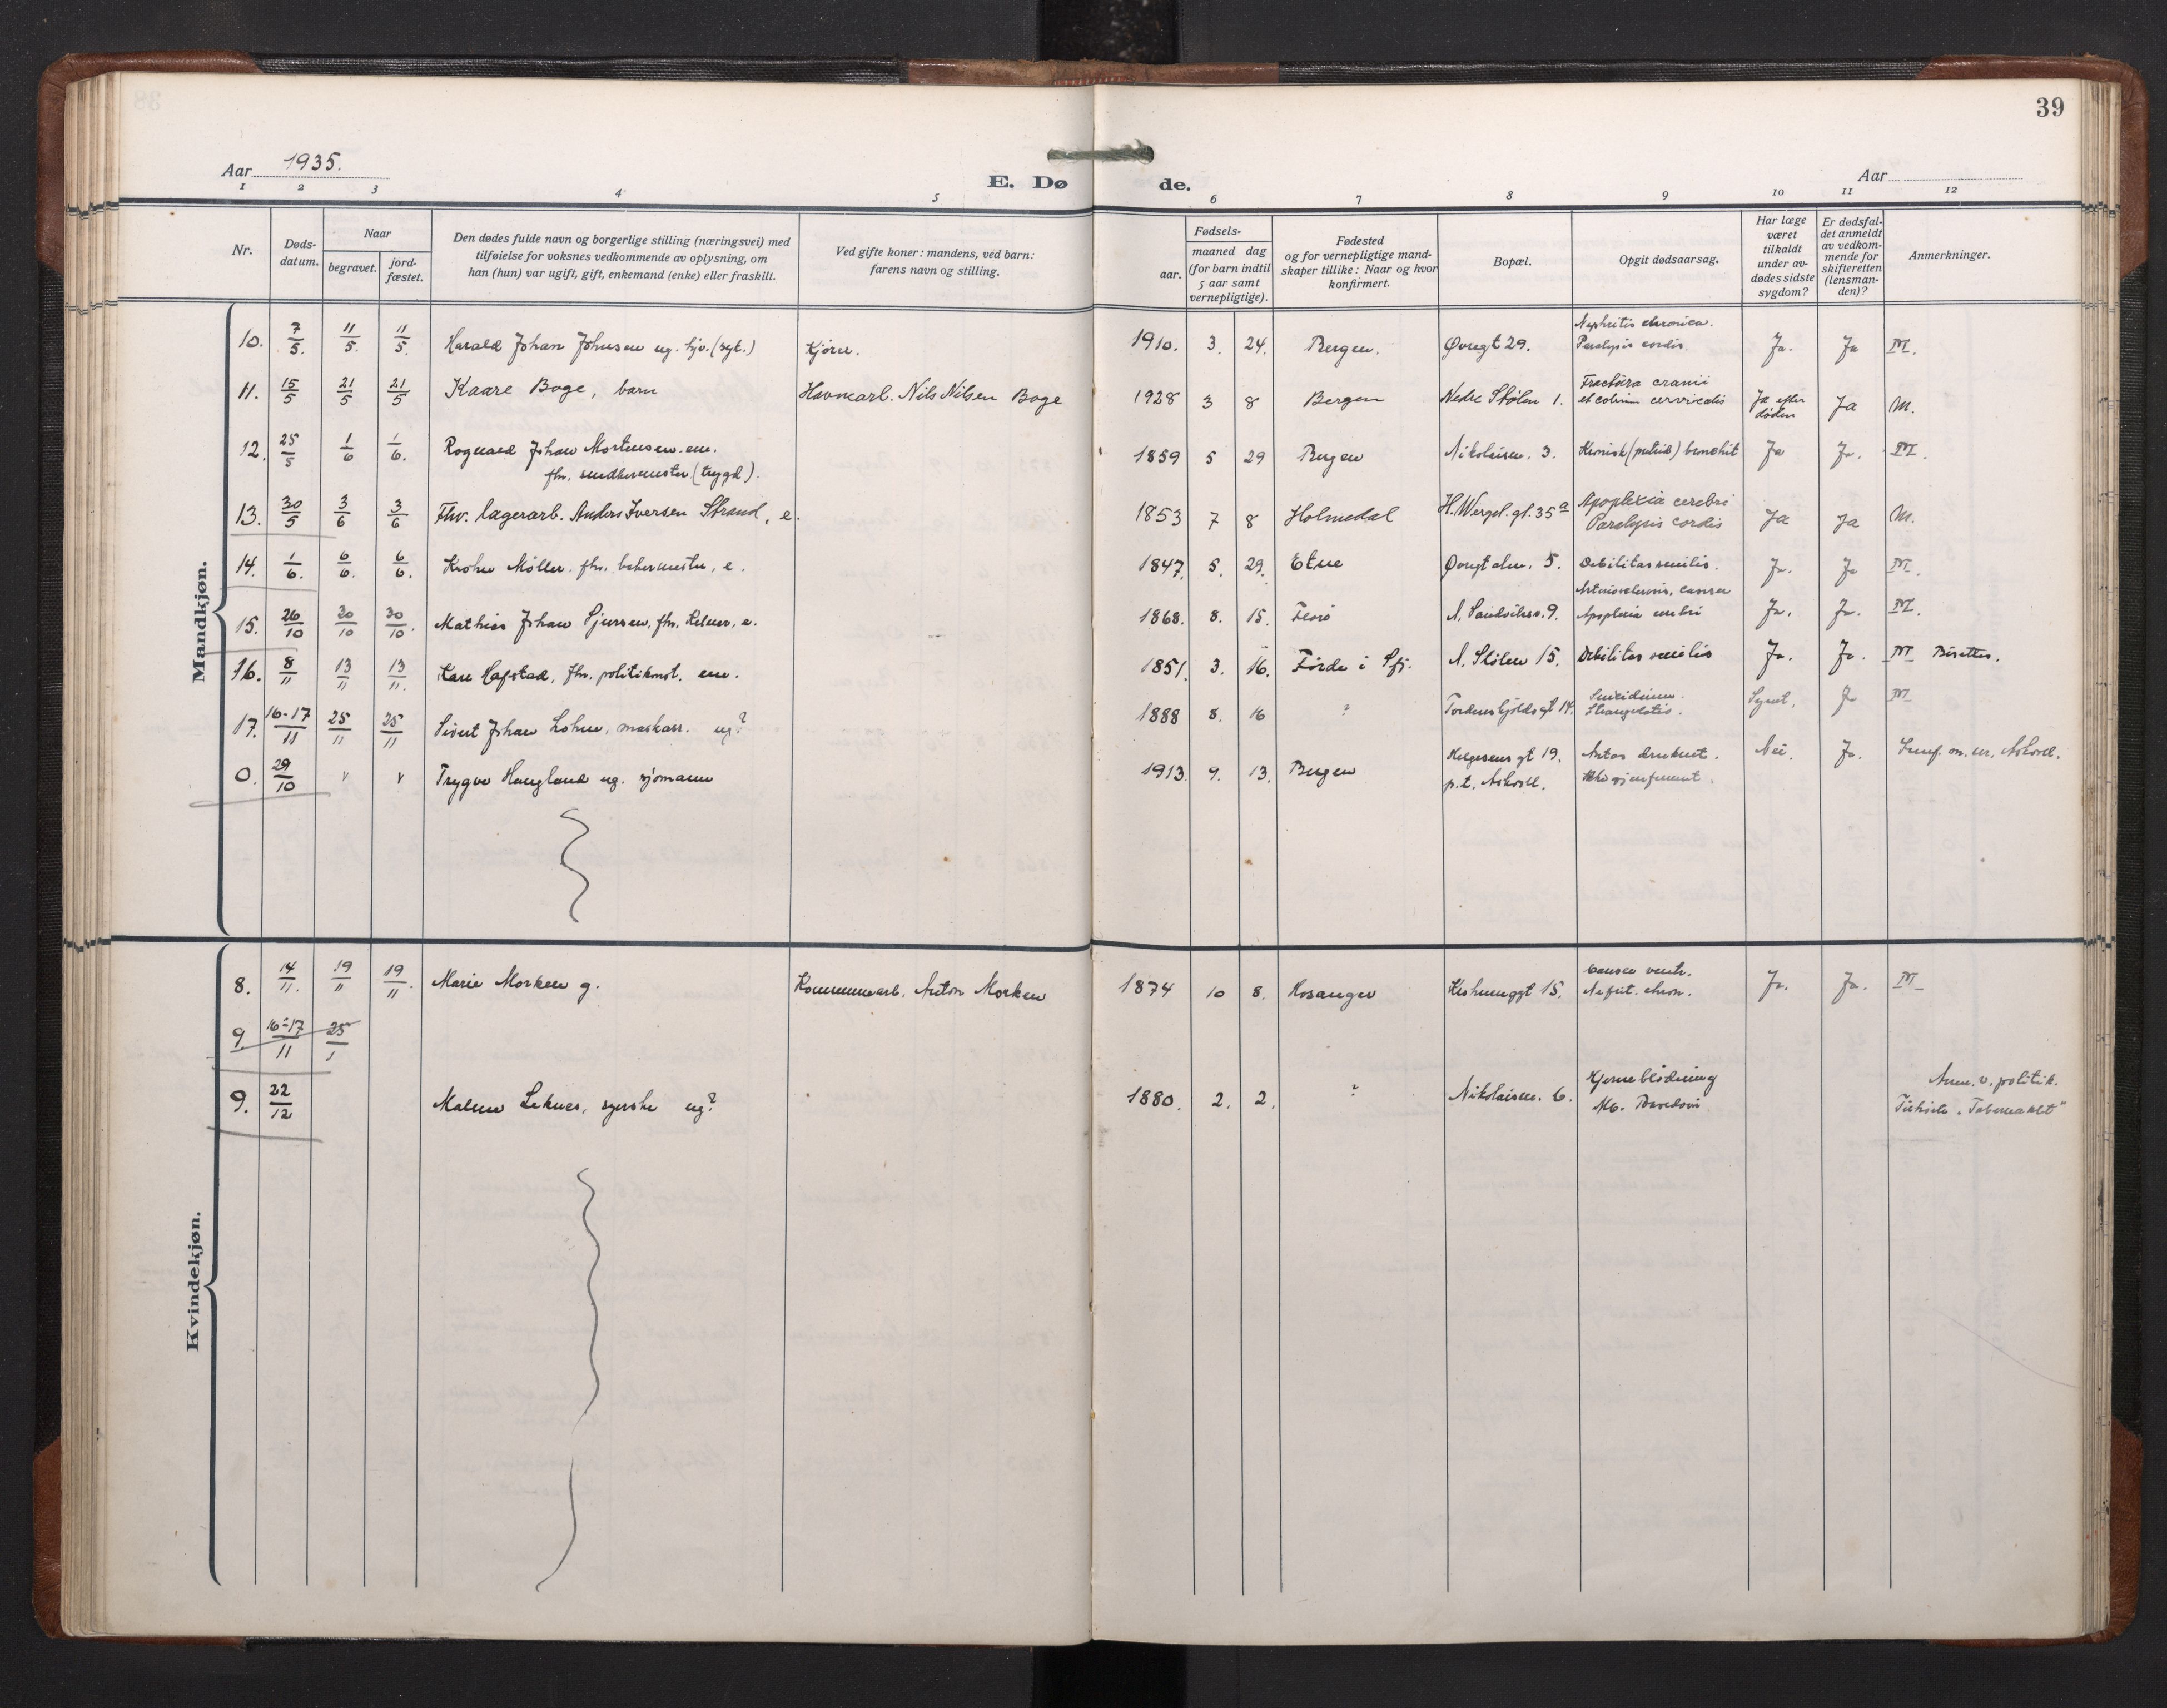 39
Aar 1935.
E. Dø de.
Aar
1 2 3 4 5 6 7 8 9 10 11 12
Nr.
Døds-
datum.
Naar
begravet.
jord-
fæstet.
Den dødes fulde navn og borgerlige stilling (næringsvei) med
tilføielse for voksnes vedkommende av oplysning, om
han (hun) var ugift, gift, enkemand (enke) eller fraskilt.
Ved gifte koner: mandens, ved barn:
farens navn og stilling.
Fødsels-
aar.
maaned dag
(for barn indtil
5 aar samt
vernepligtige).
Fødested
og for vernepligtige mand-
skaper tillike: Naar og hvor
konfirmert.
Bopæl.
Opgit dødsaarsag.
Har læge
været
tilkaldt
under av-
dødes sidste
sygdom?
Er dødsfal-
det anmeldt
av vedkom-
mende for
skifteretten
(lensman-
den)?
Anmerkninger.
Mandkjøn.
Nephritis chronica.
10. 7/5. 11/5. 11/5. Harald Johan Johnsen ug. 1910. 3. 24. Bergen. Øvregt 29. Paralysis cordis Ja. Ja M.
Fractura cranii
11. 15/5 21/5 21/5 Kaare Boge, barn Havnearb. Nils Nilsen Boge 1928 3 8 Bergen Nedre Stølen 1. et cervicalis Ja efter døden Ja M.
12. 25/5 1/6 1/6. Rognald Johan Mortensen. em. 1859 5 29 Bergen Nikolaism. 3. Kronisk (putrid) bronchit Ja Ja. M.
fhv. (trygd).
13. 30/5 3/6 3/6 Fhv. lagerarb. Anders Iversen Strand, e. 1853 7 8 Holmedal H. Wergel. gt. 35a Apoplexia cerebri
Paralysis cordis Ja Ja M.
14. 1/6. 6/6. 6/6. Krohn Møller. fhv. bakermester, e. 1847. 5. 29. Etne Øvregt alm. 5. Debilitas senilis. Ja. Ja M.
15. 26/10 30/10 30/10. Mathias Johan Sjursen, fhv. Kelner, e. 1868. 8. 15. Florø N. Sandviksv. 9. Apoplexia cerebri Ja. Ja. M.
16. 8/11 13/11 13/11. Kare Hafstad, fhv. politikonst. em. 1851. 3. 16. Førde i Sfj. N. Stølen 15. Debilitas senilis Ja. Ja. M Bisettes.
Suicidium.
17. 16-17/11 25/11 25/11 Sivert Johan Lohne, maskasr. ug? 1888 8. 16 ? Tordenskjolds gt 14. Strangulatio. Ja M
0. 29/10 v v Trygve Haugland ug. sjømann 1913. 9. 13. Bergen Helgesens gt 19.
p.t. Askvoll. Antas druknet.
Ikke gjenfunnet. Nei. Ja. Askvoll.
Kvindekjøn.
8. 14/11. 19/11 19/11 Marie Morken g. Kommunearb. Anton Morken 1874 10 8. Hosanger 15. Cancer ventr.
Nefrit. chron. Ja. Ja. M
9. 16-17/11 25
9. 22/12 Malene Leknes, syerske ug? 1880. 2. 2. ? Nikolaism. 6. Hjerneblødning
Mb. Basedowi Anm. v. politik.
Tilhørte "Tabernaklet"